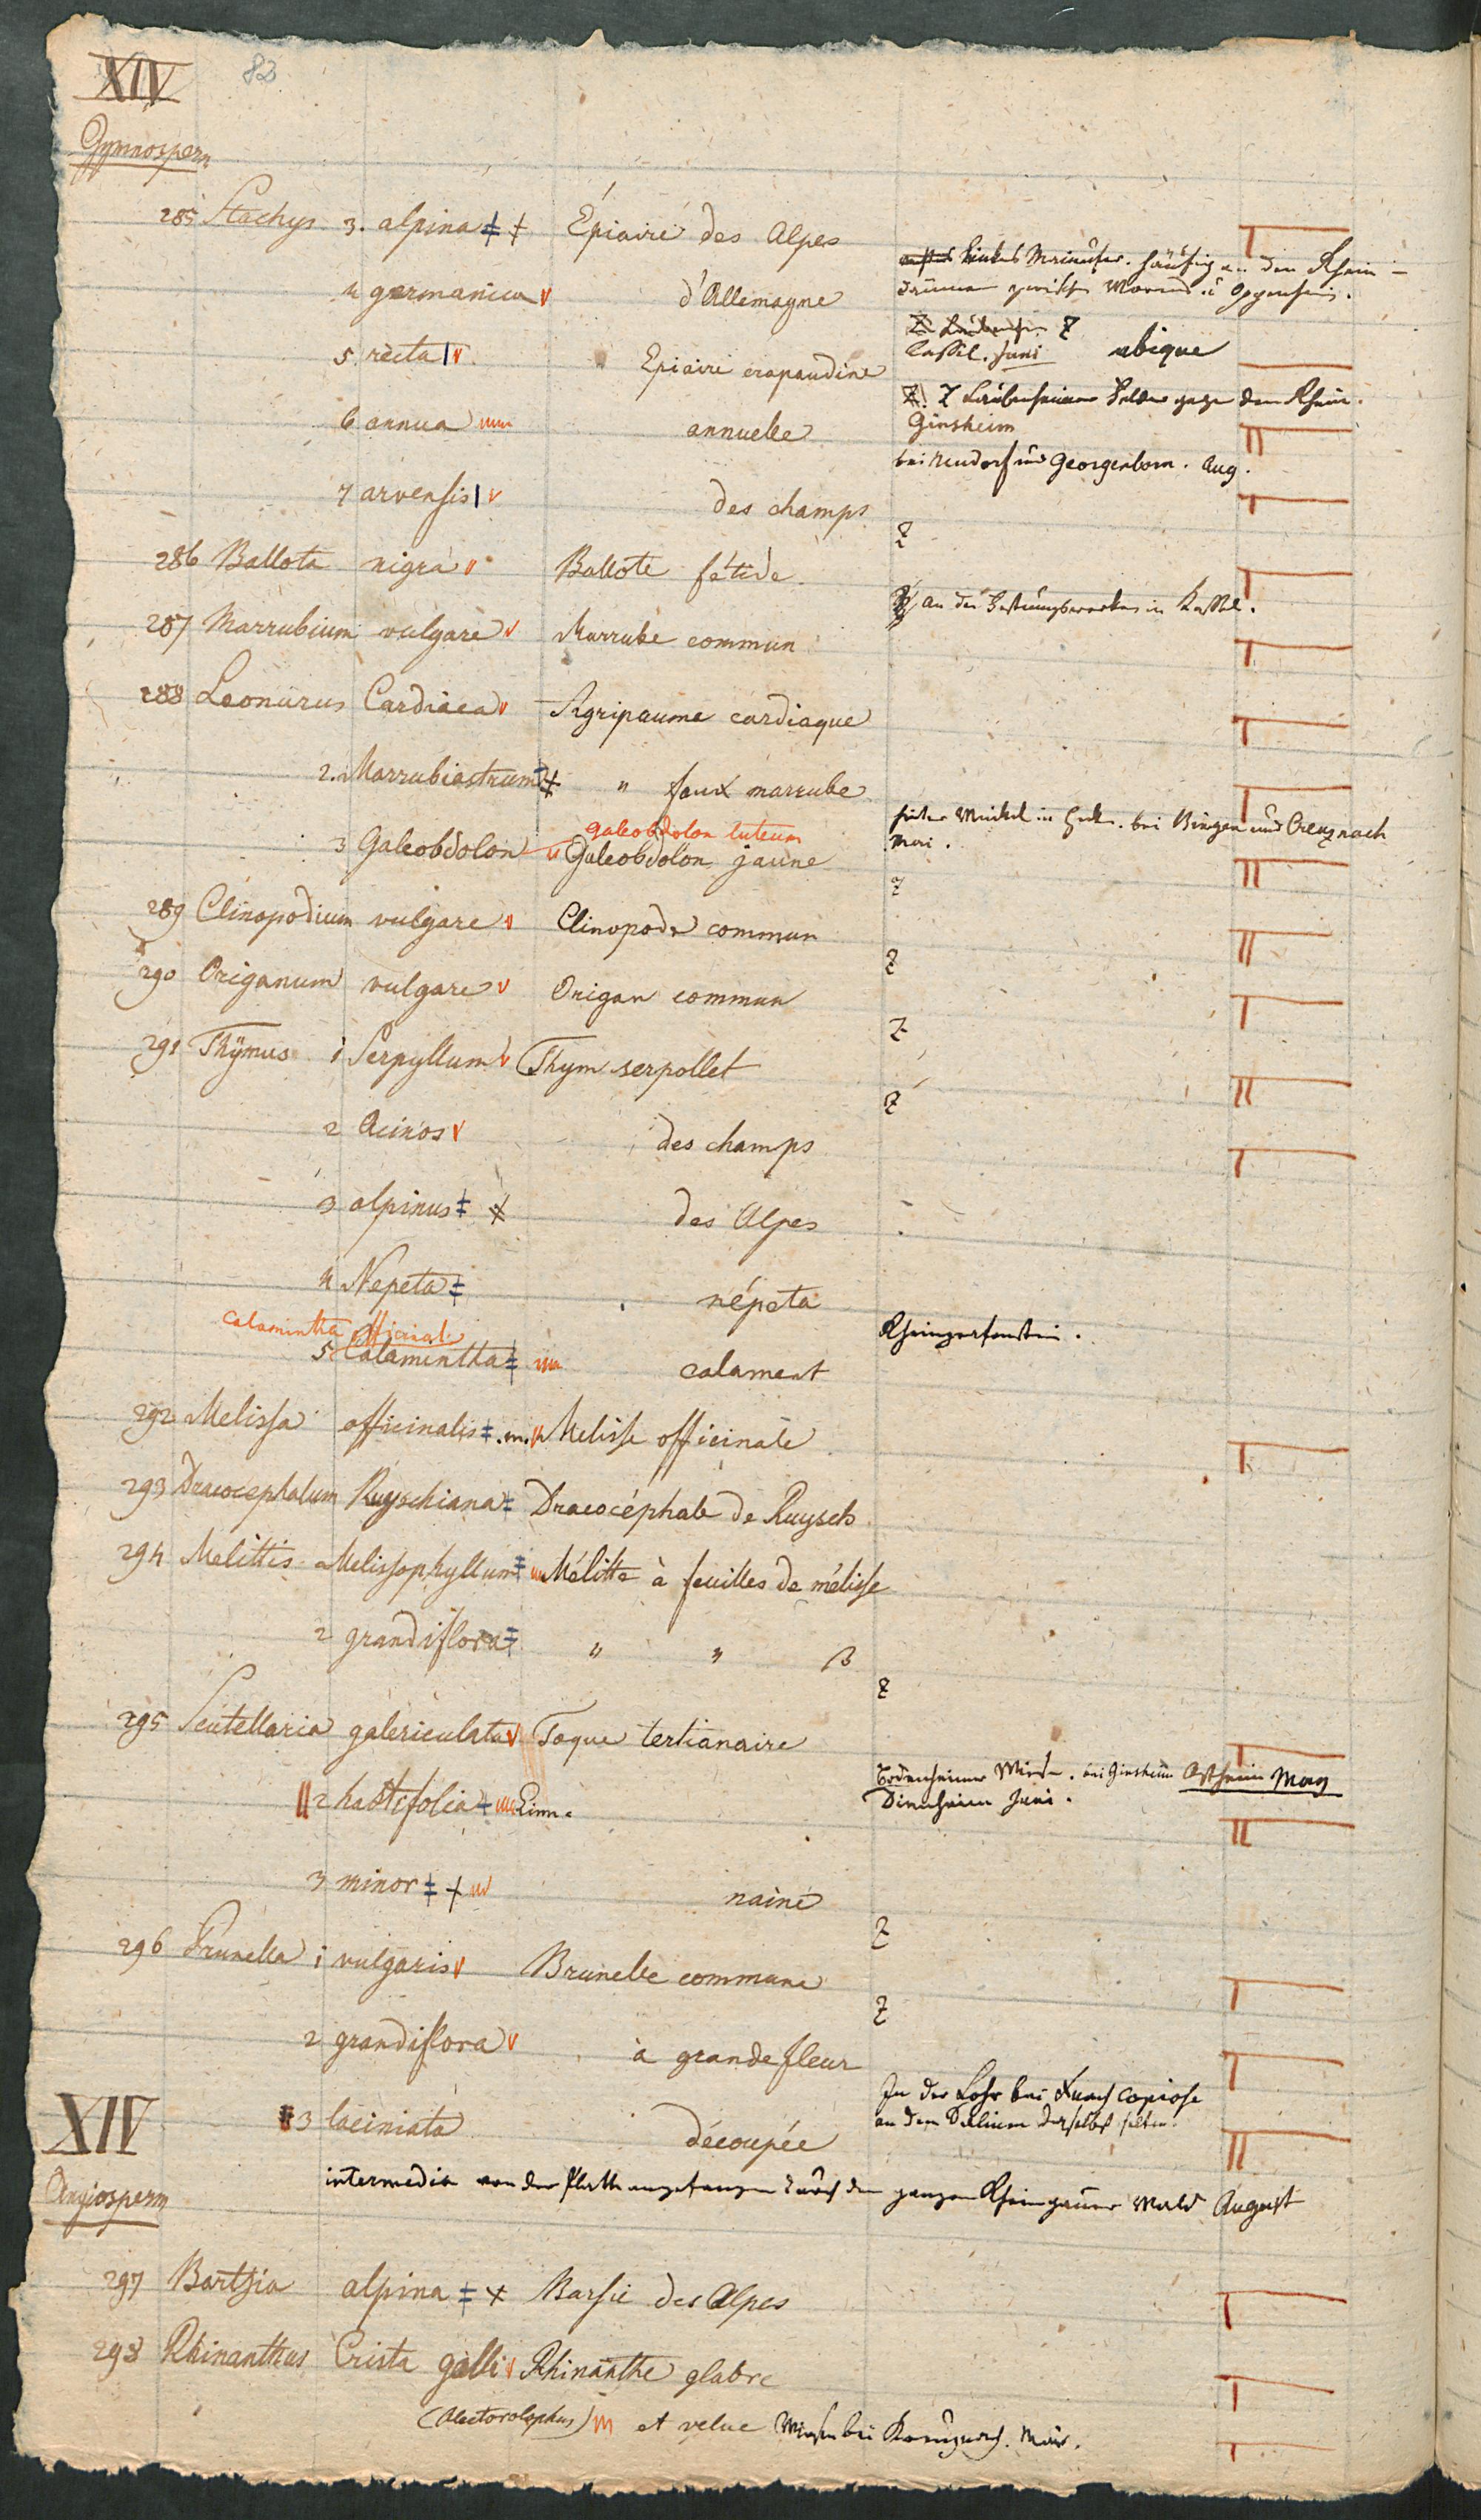 XIV 82
Gymnosperm
285 Stachys 3. alpina ‡ + Épiaire des Alpes
4 germanica v d'Allemagne linkes Mainufer. häufig an den Rhein-
zwischen u Oppenheim.
5 recta | v Epiaire crapaudine Cassel. Juni ubique
6 annua annuelle Z Laubenheimer Felder gegen den Rhein.
Ginsheim
7 arvensis | v des champs bei Neudorf und Georgenborn. Aug.
286 Ballota nigra v Ballote fétide. Z
287 Marrubium vulgare v Marrube commun an den Festungswerken in Kassel.
288 Leonurus Cardiaca v Agripaume cardiaque
2. Marrubiastrum ‡ " faux marrube
galeobdolon luteum
3 Galeobdolon v Galeobdolon jaune hinter Winkel in Hecken. bei Bingen und Creuznach
Mai.
289 Clinopodium vulgare v Clinopode commun Z
290 Origanum vulgare v Origan commun Z
291 Thymus 1 Serpyllum v Thym serpollet Z
2 Acinos v des champs Z
3 alpinus ‡ + des Alpes
4 Nepeta ‡ népeta
calamintha officinalis
5 Calamintha ‡ calament Rheingrafenstein.
292 Melissa officinalis ‡ .m. Melisse officinale
293 Dracocephalum Ruyschiana ‡ Dracocéphale de Ruysch
294 Melittis Melissophyllum ‡ Mélitte à feuilles de mélisse
2 grandiflora ‡ " " β
295 Scutellaria galericulata v Toque tertianaire Z
2 hastifolia ‡ Linn. Bodenheimer Wiesen. bei Ginsheim Astheim May
Dienheim Juni.
3 minor ‡ + naine
296 Prunella 1 vulgaris v Brunelle commune Z
2 grandiflora v à grande fleur Z
XIV
3 laciniata découpée In der Lohr bei copiose
an dem daselbst selten.
intermedia von der Platte angefangen durch den ganzen Rheingauer Wald August
Angiosperm
297 Bartsia alpina ‡ + Barsie des Alpes
298 Rhinanthus Crista galli v Rhinanthe glabre
(Alectorolophus) et velue Wiesen bei Kreuznach. Mai.